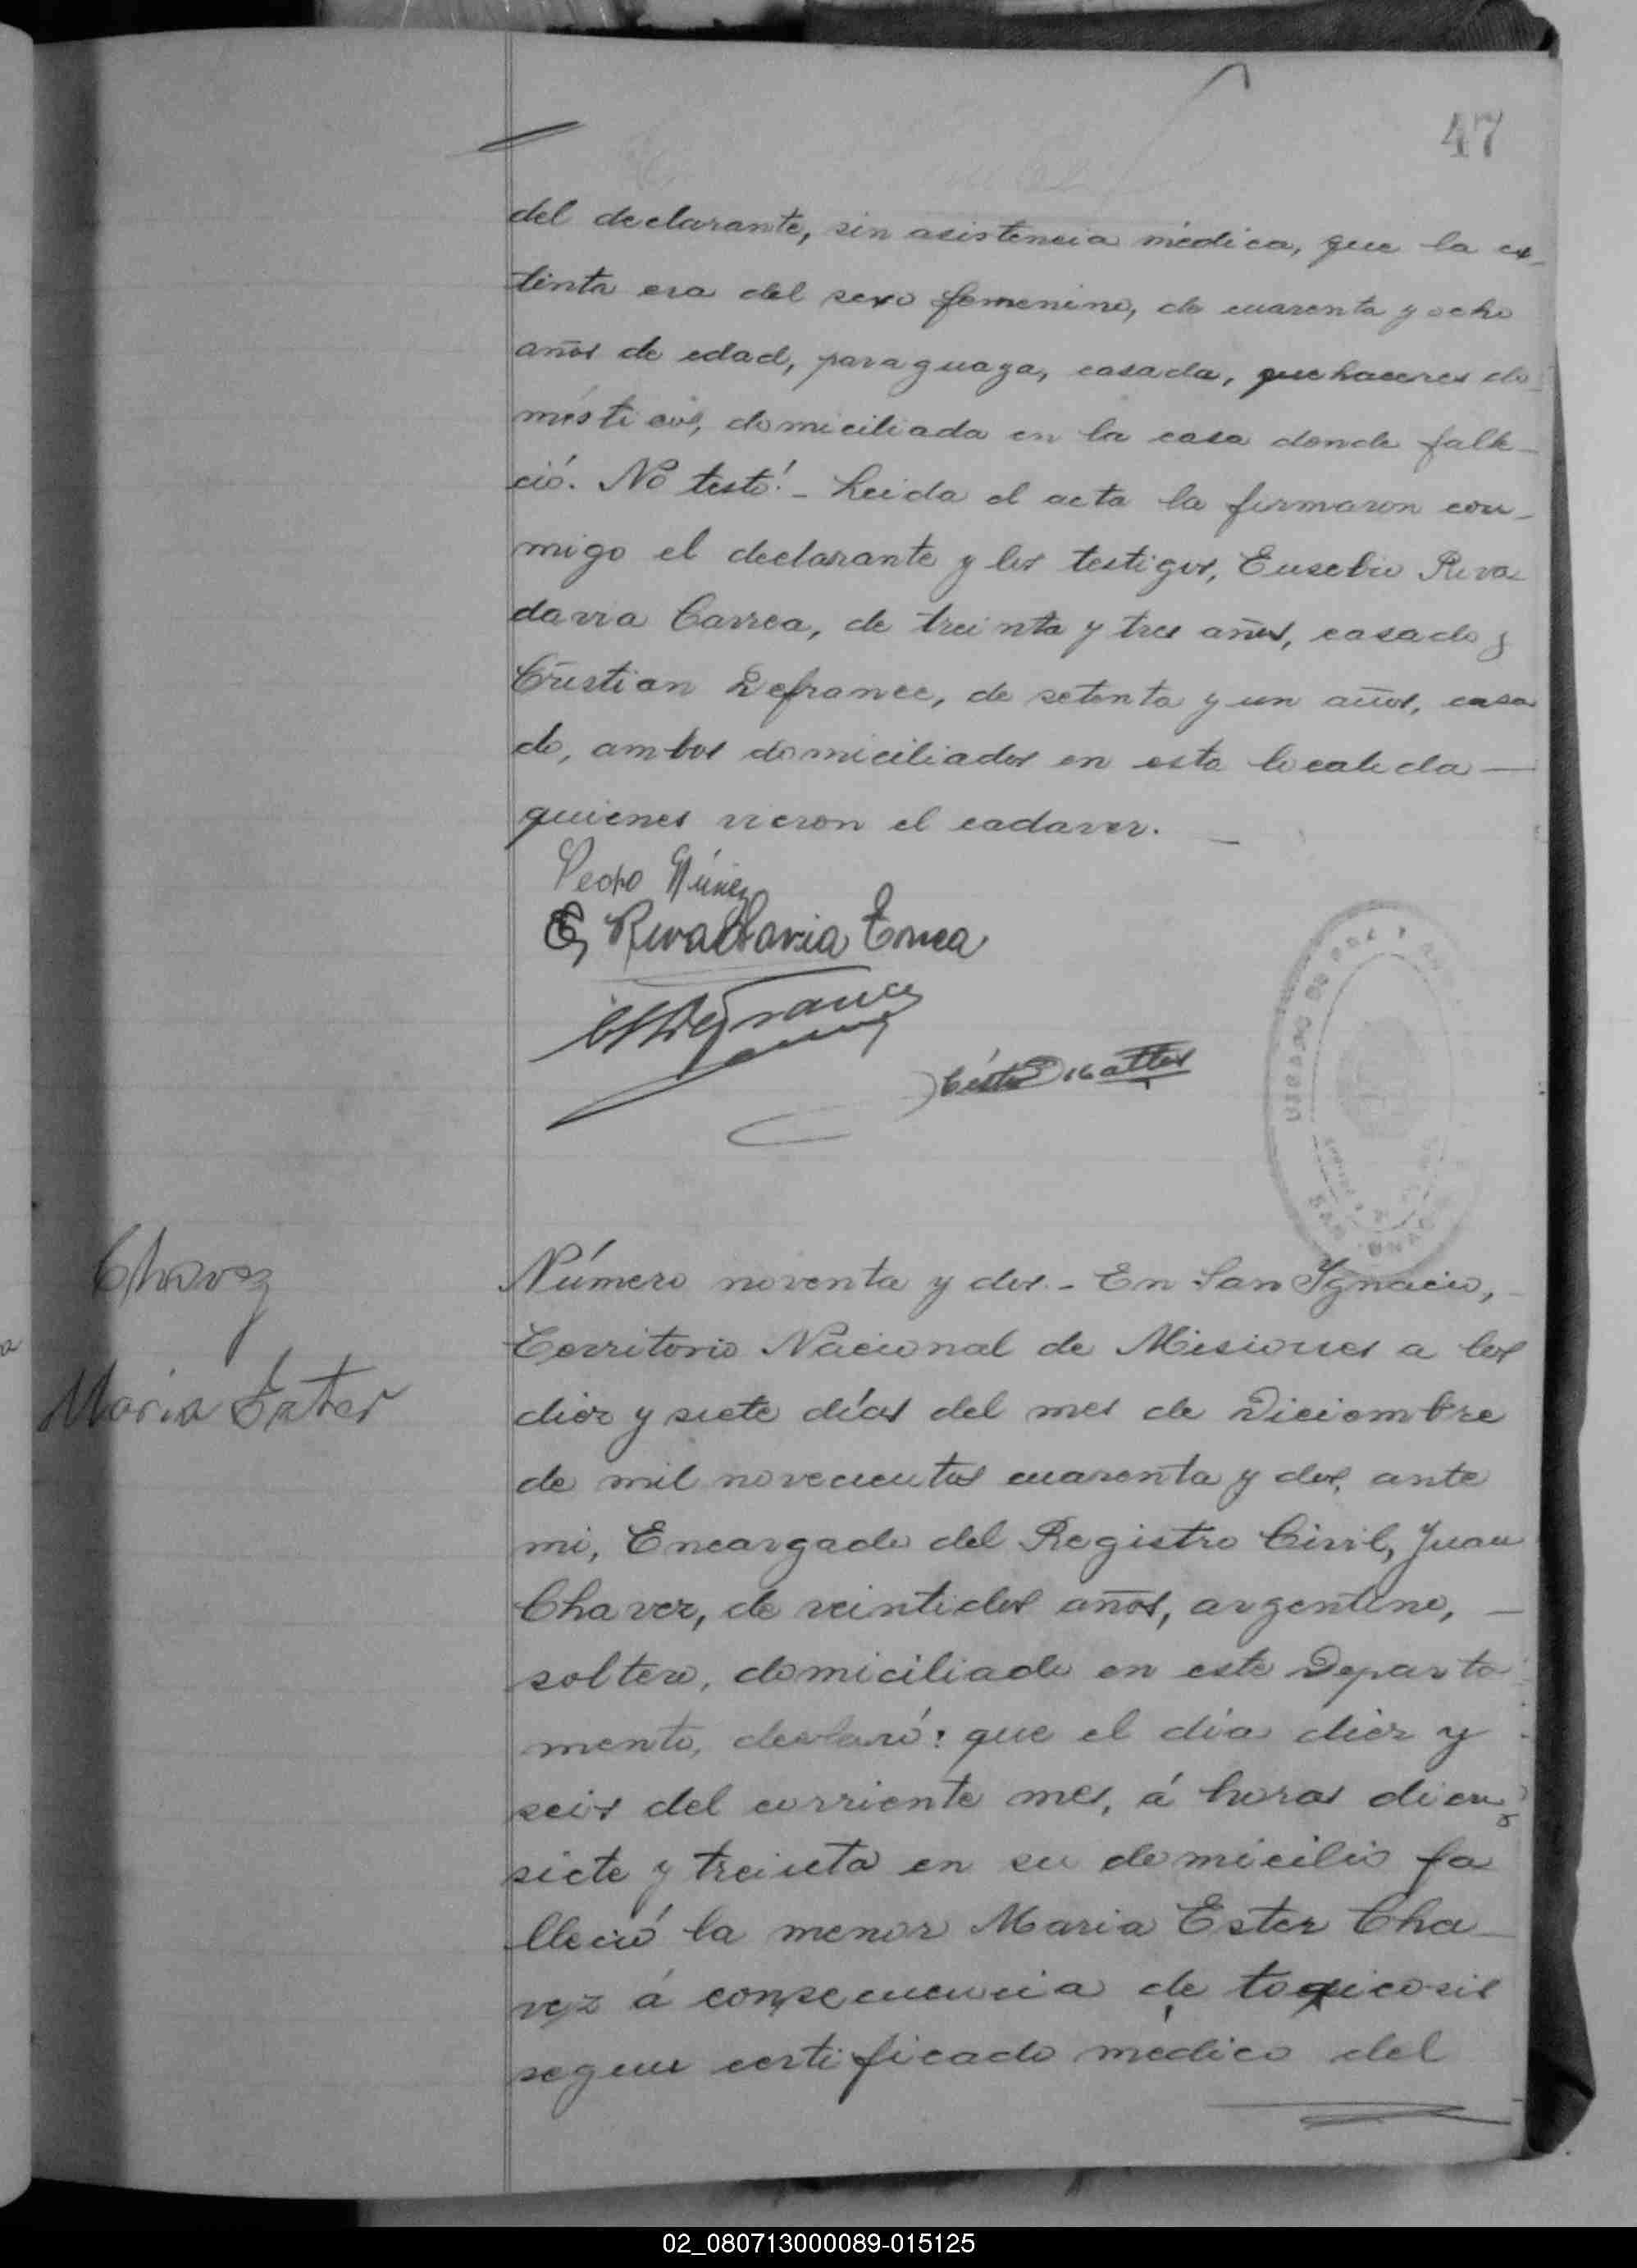 47
del declarante, sin asistencia médica, que la ex-
tinta era del sexo femenino, de cuarenta y ocho
años de edad, paraguaya, casada, quehaceres do-
mésticos, domiciliada en la casa donde falle-
ció. No testó. - Leida el acta la firmaron con-
migo el declarante y los testigos, Eusebio Riva-
davia Correa, de treinta y tres años, casado y
Cristian Lefrance, de setenta y un años, casa
do, ambos domiciliados en esta localida—
quienes vieron el cadaver. —
Pedro Núnez
E. Rivadavia Correa
Chavez
Maria Ester
Número noventa y dos. - En San Ignacio, -
Territorio Nacional de Misiones a los
diez y siete días del mes de Diciembre
de mil novecientos cuarenta y dos, ante
mi, Encargado del Registro Civil, Juan
Chavez, de veintidos años, argentino, —
soltero, domiciliado en este Departa
mento, declaró: que el día diez y
seis del corriente mes, á horas diez y
siete y treinta en su domicilio fa
lleció la menor Maria Ester Cha-
vez á consecuencia de toxicosis
segun certificado médico del
02_080713000089-015125